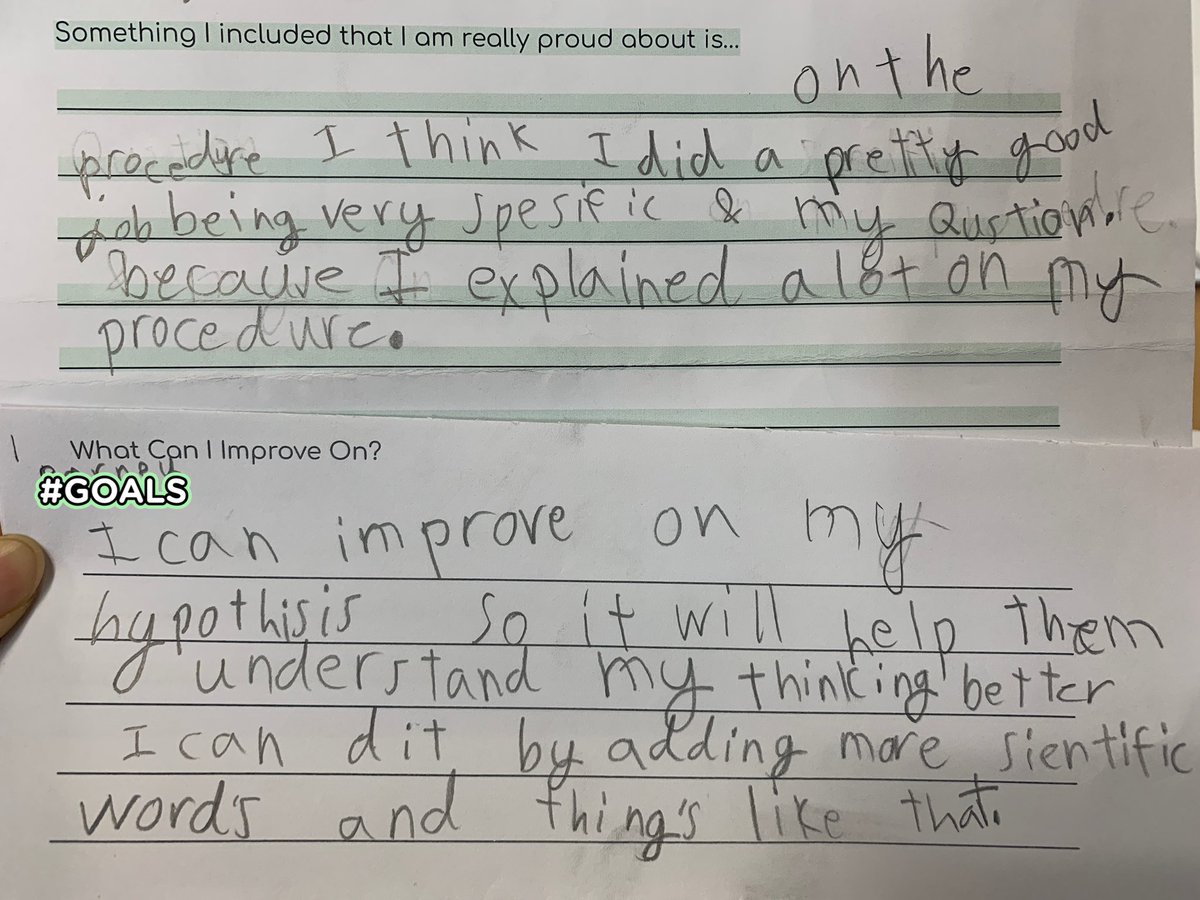 Something I included that I am really proud about is...
on the
procedure I think I did a pretty good
job being very spesific & my Qustion.
because I explained a lot on my
procedure.
What Can I Improve On?
#GOALS
I can improve on my
hypothisis so it will help them
understand my thinking better
I can d it by adding more sientific
word's and thing's like that.